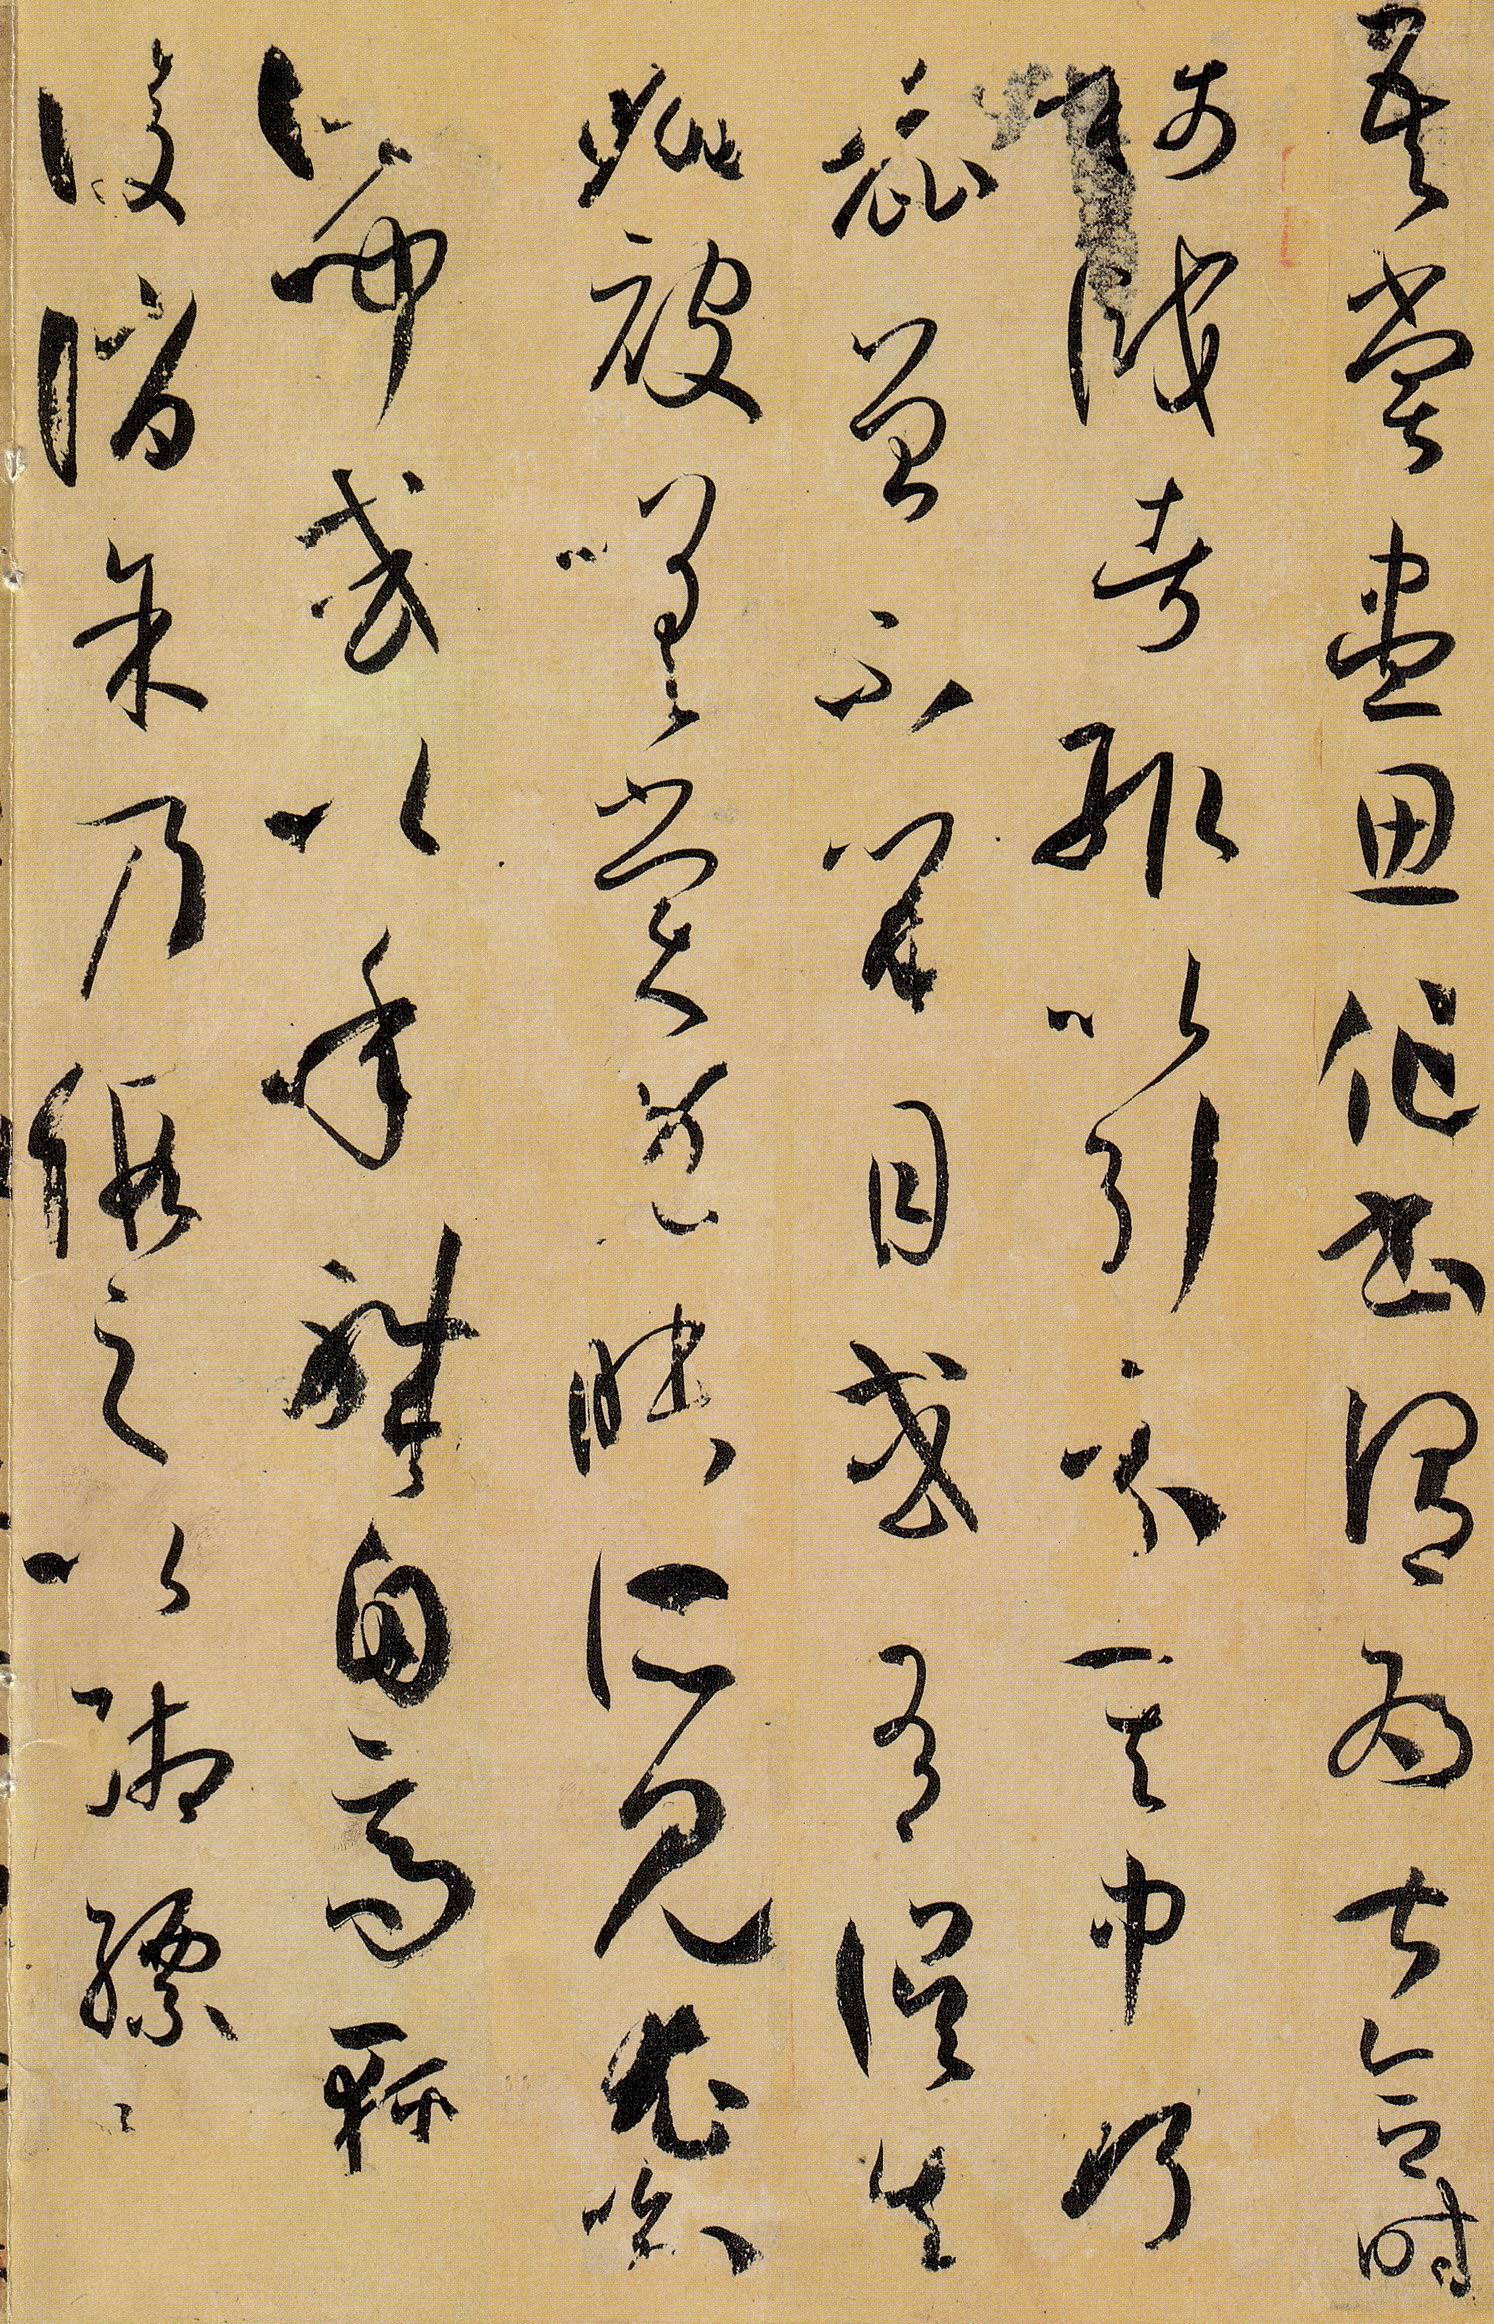 吾嘗盡思作書謂為甚合時
稱識者輒以引示其中巧
麗曾不留目或有誤失
翻被嗟賞既昧所見尤喻
所聞或以年職自高輕
陵誚余乃假之以緗縹